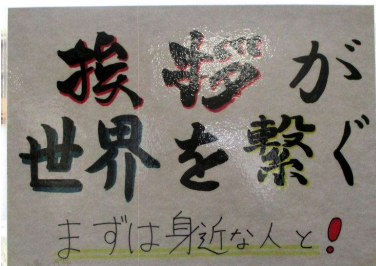 挨拶が
世界を繋ぐ
まずは身近な人と!